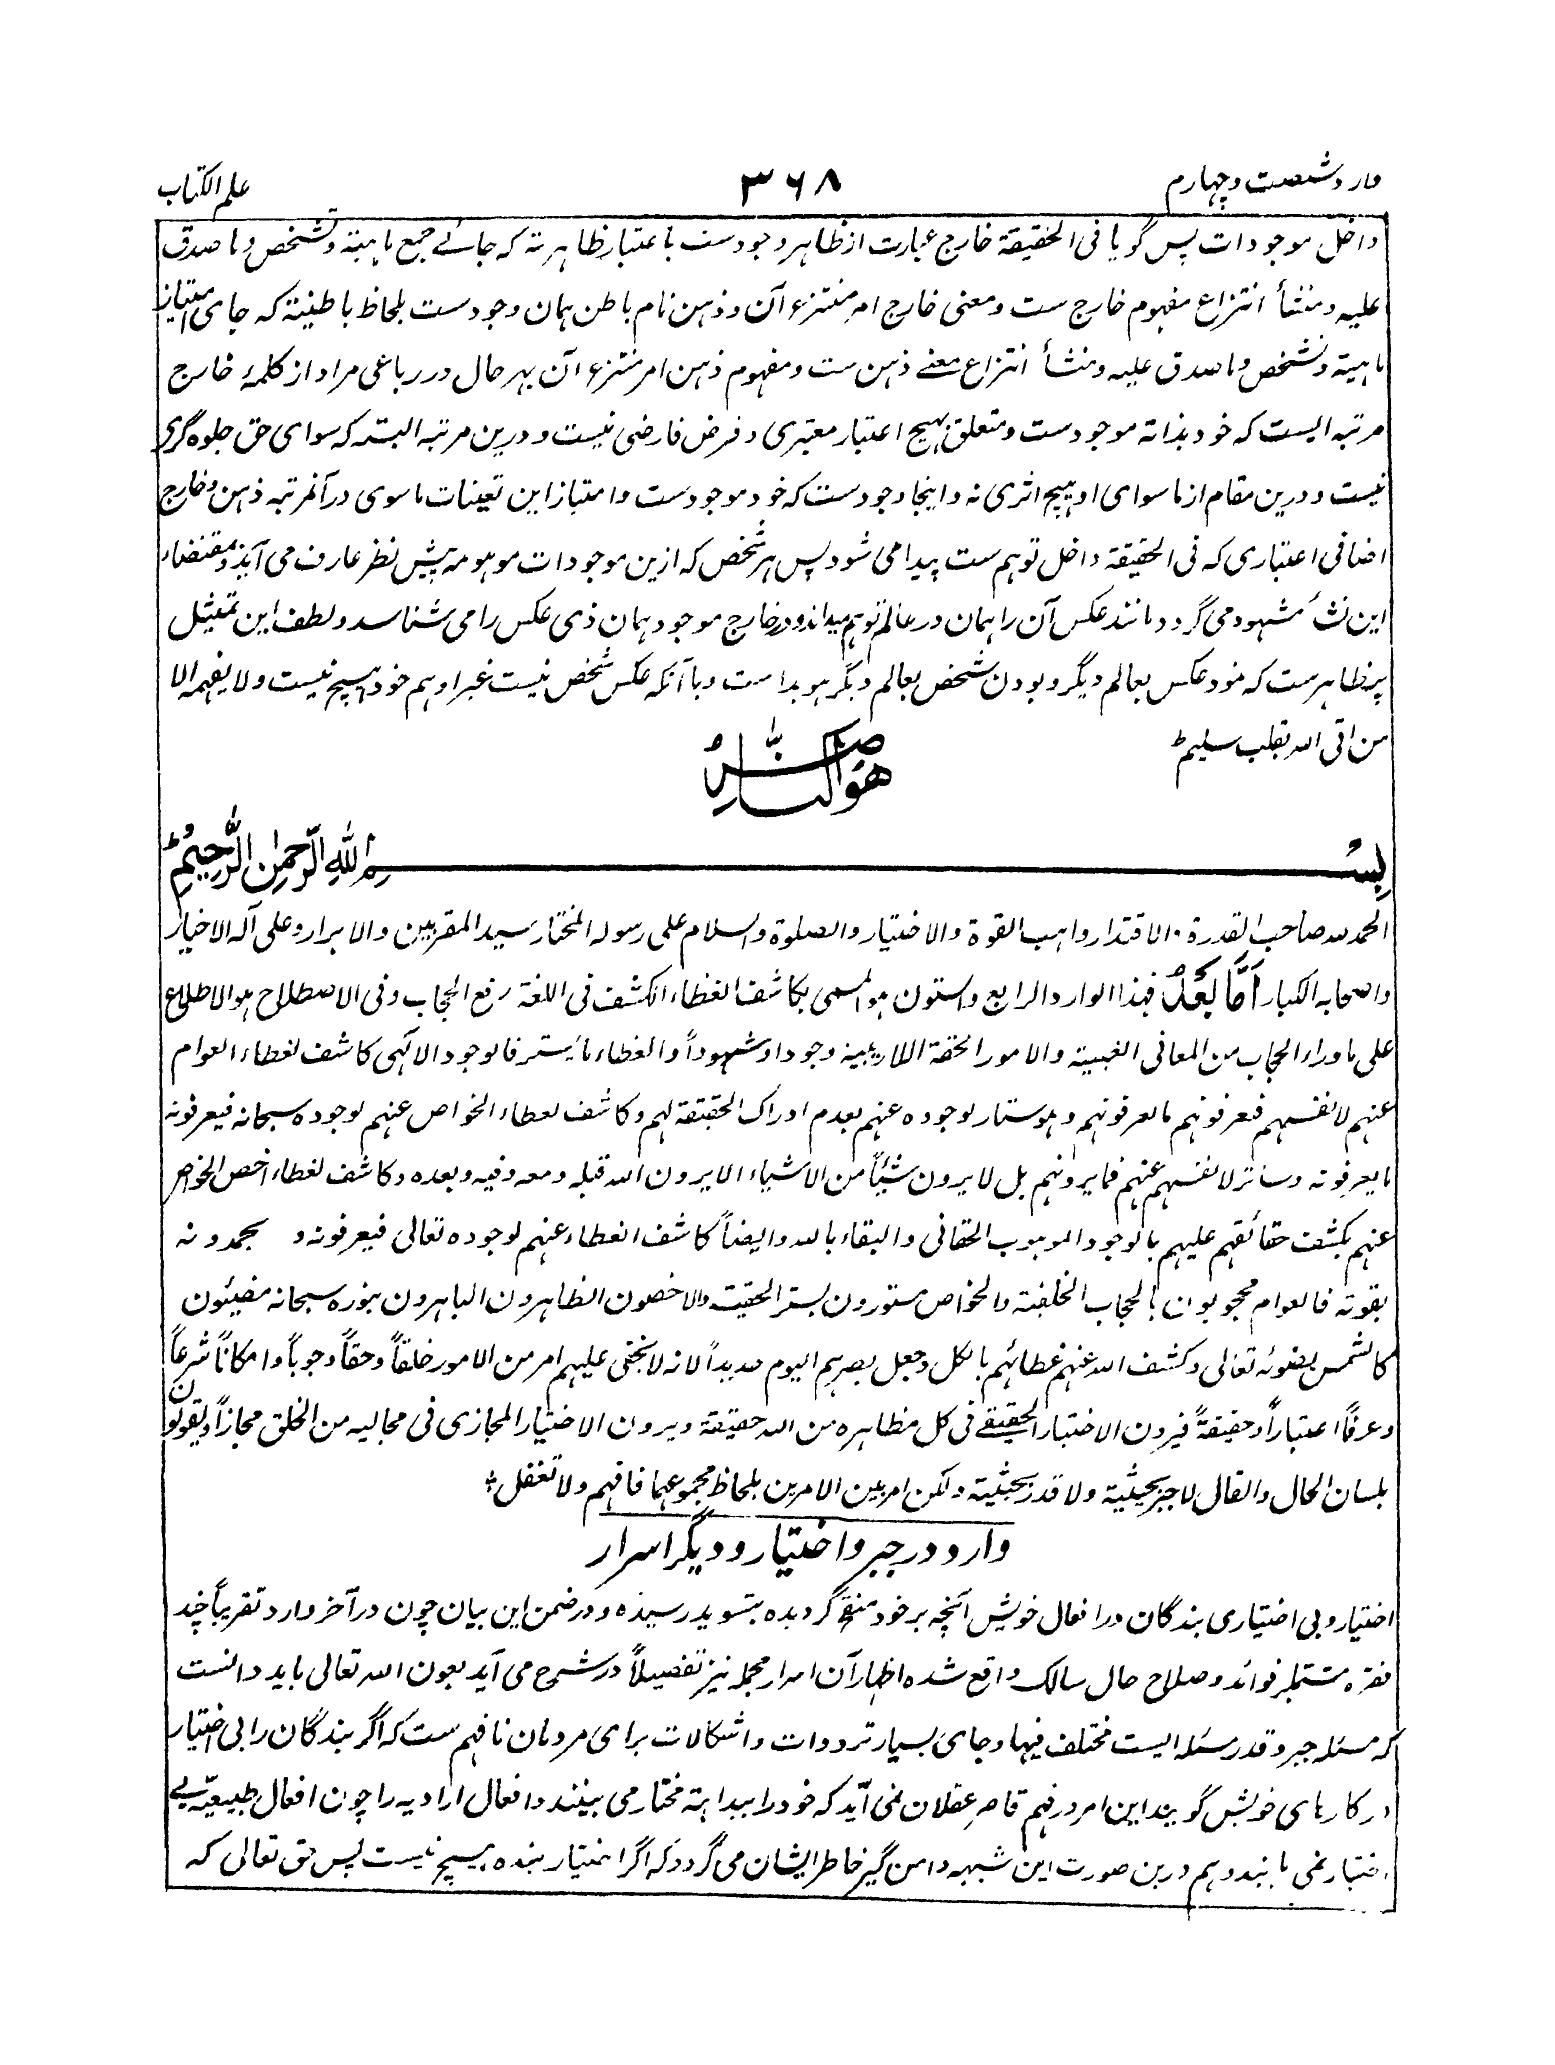 وارد شصت و چهارم
۳۶۸
علم الکتاب
داخل موجودات پس گویا فی الحقیقة خارج عبارت از ظاهر وجودست باعتبار ظاهریة که جائے جمیع ماهیة و تشخص و ما صدق
علیه و منشأ انتزاع مفهوم خارج ست و معنی خارج امر منتزع آن و ذهن نام باطن همان وجودست بلحاظ باطنیة که جای امتیاز
ماهیة و تشخص و ما صدق علیه و منشأ انتزاع معنے ذهن ست و مفهوم ذهن امر منتزع آن بهر حال در رباعی مراد از کلمهٔ خارج
مرتبه ایست که خود بذاته موجودست و متعلق بهیچ اعتبار معتبری و فرض فارضی نیست و درین مرتبه البته که سوای حق جلوه گری
نیست و درین مقام از ماسوای او هیچ اثری نه و اینجا وجودست که خود موجودست و امتیاز این تعینات ماسوی در آنمرتبه ذهن و خارج
اضافی اعتباری که فی الحقیقة داخل توهم ست پیدا می شود پس هر شخص که ازین موجودات موهومه پیش نظر عارف می آید و بمقتضاء
این نشأ مشهود می گردد مانند عکس آن را همان در عالم توهم میداند و در خارج موجود همان ذی عکس را می شناسد و لطف این تمثیل
پر ظاهرست که نمود عکس بعالم دیگر و بودن شخص بعالم دیگر هویداست و با آنکه عکس شخص نیست غیر او هم خود هیچ نیست و لا یفهمه الا
من اتی الله بقلب سلیم
هو الناصر
بسم الله الرحمن الرحیم
الحمد لله صاحب القدرة و الاقتدار واهب القوة و الاختیار و الصلوة و السلام علی رسوله المختار سید المقربین و الابرار و علی آله الاخیار
و اصحابه الکبار اما بعد فهذا الوارد الرابع و الستون هو المسمی بکاشف الغطاء الکشف فی اللغة رفع الحجاب و فی الاصطلاح هو الاطلاع
علی ما وراء الحجاب من المعانی الغیبیة و الامور الحقة اللاریبیة وجودا و شهوداً و الغطاء ما یستر فالوجود الالهی کاشف لغطاء العوام
عنهم لانفسهم فیعرفونهم ما یعرفونهم و هو ستار لوجوده عنهم بعدم ادراک الحقیقة لهم و کاشف لغطاء الخواص عنهم لوجوده سبحانه فیعرفونه
ما یعرفونه و ساتر لانفسهم عنهم فما یرونهم بل لا یرون شیئاً من الاشیاء الا یرون الله قبله و معه و فیه و بعده و کاشف لغطاء اخص الخواص
عنهم بکشف حقائقهم علیهم بالوجود الموهوب الحقانی و البقاء بالله و ایضاً کاشف الغطاء عنهم لوجوده تعالی فیعرفونه و یحمدونه
بقوته فالعوام محجوبون بالحجاب الخلقیة و الخواص مستورون بستر الحقیة و الاخصون الظاهرون الباهرون بنوره سبحانه مضیئون
کالشمس بضوئه تعالی و کشف الله عنهم غطائهم بالکل و جعل بصرهم الیوم حدیداً لانه لا یخفی علیهم امر من الامور خلقاً و حقاً وجوباً و امکاناً شرعاً
و عرفاً اعتباراً و حقیقةً فیرون الاختیار الحقیقے فی کل مظاهره من الله حقیقة و یرون الاختیار المجازی فی مجالیه من الخلق مجازاً و یقولون
بلسان الحال و القال لا جبر بحیثیة و لا قدر بحیثیة و لکن امر بین الامرین بلحاظ مجموعهما فافهم و لا تغفل
وارد در جبر و اختیار و دیگر اسرار
اختیار و بی اختیاری بندگان در افعال خویش آنچه بر خود منقح گردیده بتسوید رسیده و در ضمن این بیان چون در آخر وارد تقریباً چند
فقره مشتملبر فوائد و صلاح حال سالک واقع شده اظهار آن اسرار مجمله نیز تفصیلاً در شرح می آید بعون الله تعالی باید دانست
که مسئله جبر و قدر مسئله ایست مختلف فیها و جای بسیار ترددات و اشکالات برای مردمان نافهم ست که اگر بندگان را بی اختیار
در کارهای خویش گویند این امر در فهم قاصر عقلان نمی آید که خود را ببداهة مختار می بینند و افعال ارادیه را چون افعال طبیعیه بے
اختیار نمی یابند و هم درین صورت این شبهه دامن گیر خاطر ایشان می گردد که اگر اختیار بنده هیچ نیست پس حق تعالی که